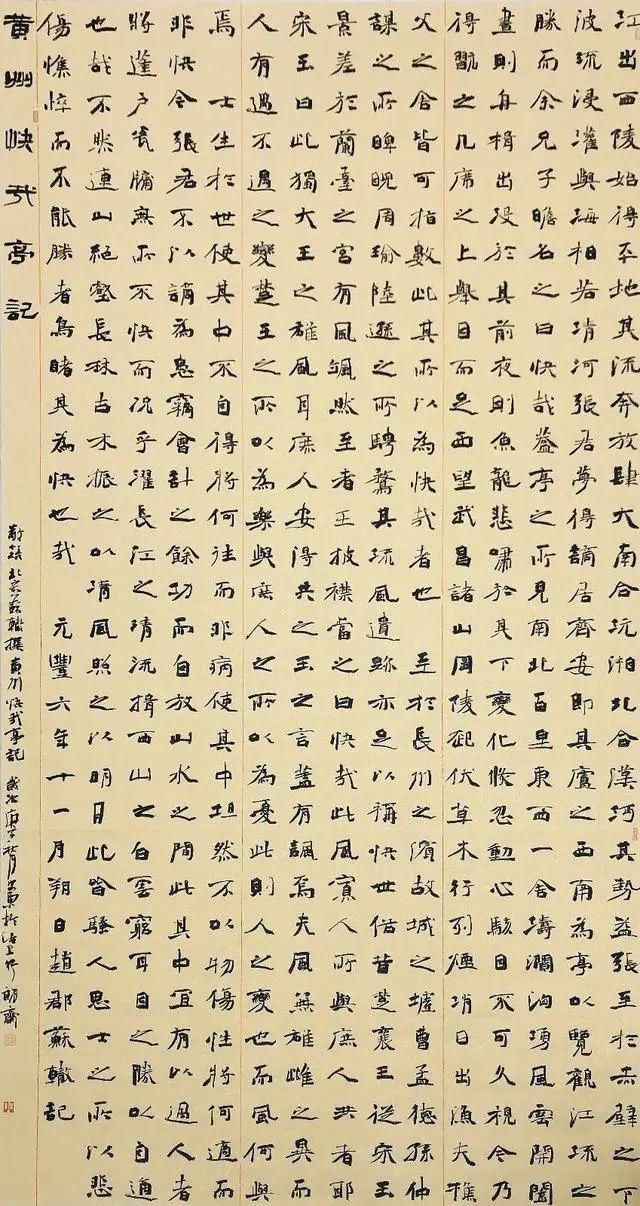 江出西陵始得平地其流奔放肆大南合沅湘北合漢沔其勢益張至於赤壁之下
波流浸灌與海相若清河張君夢得謫居齊安即其廬之西南為亭以覽觀江流之
勝而余兄子瞻名之曰快哉蓋亭之所見南北百里東西一舍濤瀾洶湧風雲開闔
晝則舟楫出没於其前夜則魚龍悲嘯於其下變化倏忽動心駭目不可久視今乃
得翫之几席之上舉目而足西望武昌諸山岡陵起伏草木行列煙消日出漁夫樵
父之舍皆可指數此其所以為快哉者也 至於長州之濱故城之墟曹孟德孫仲
謀之所睥睨周瑜陸遜之所騁騖其流風遺跡亦足以稱快世俗昔楚襄王從宋玉
景差於蘭臺之宮有風颯然至者王披襟當之曰快哉此風寡人所與庶人共者耶
宋玉曰此獨大王之雄風耳庶人安得共之玉之言蓋有諷焉夫風無雄雌之異而
人有遇不遇之變楚王之所以為樂與庶人之所以為憂此則人之變也而風何與
焉 士生於世使其中不自得將何往而非病使其中坦然不以物傷性將何適而
非快今張君不以謫為患竊會計之餘功而自放山水之間此其中宜有以過人者
將蓬户瓮牖無所不快而況乎濯長江之清流揖西山之白雲窮耳目之勝以自適
也哉不然連山絕壑長林古木振之以清風照之以明月此皆騷人思士之所以悲
傷憔悴而不能勝者烏睹其為快也哉 元豐六年十一月朔日趙郡蘇轍記
黄州快哉亭記
敬錄北宋蘇轍撰黄州快哉亭記 歲次庚子